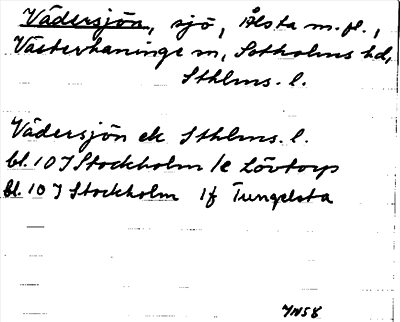 Vädersjön, sjö, Ålsta m.fl.,
Västerhaninge sn, Sotholms hd,
Sthlms. l.
Vädersjön ek Sthlms. l.
bl. 10 I Stockholm 1e Lövtorp
bl. 10 I Stockholm 1f Tungelsta